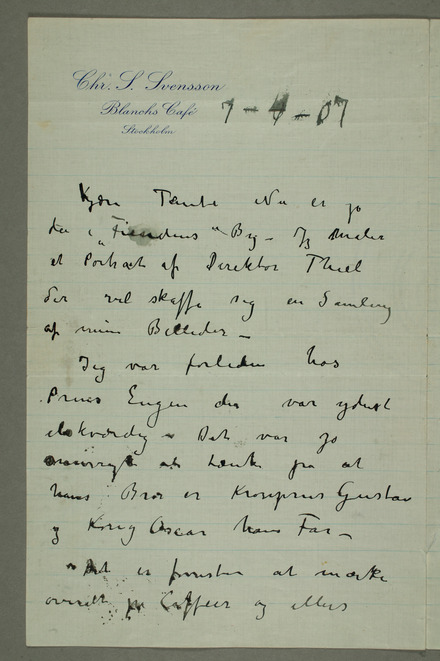 Chr. S. Svensson
Blanchs Café
Stockholm
7-4-07
Kjære Tante Nu er jo
du i "Fiendens" By – Jeg maler
et Portræt af Direktør Thiel
der vil skaffe sig en Samling
af mine Billeder –
Jeg var forleden hos
Prins Eugen der var yderst
elskværdig – Det var jo
at tænke på at
hans Bror er Kronprins Gustav
og Kong Oscar hans Far –
Det er at mærke
overalt på Cafeer og ellers